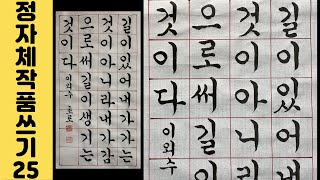 정자체작품쓰기25
길이있어내가가는
것이아니라내가감
으로써길이생기는
것이다
이외수
길이있어내
것이아니라
으로써길이
것이다
이외수